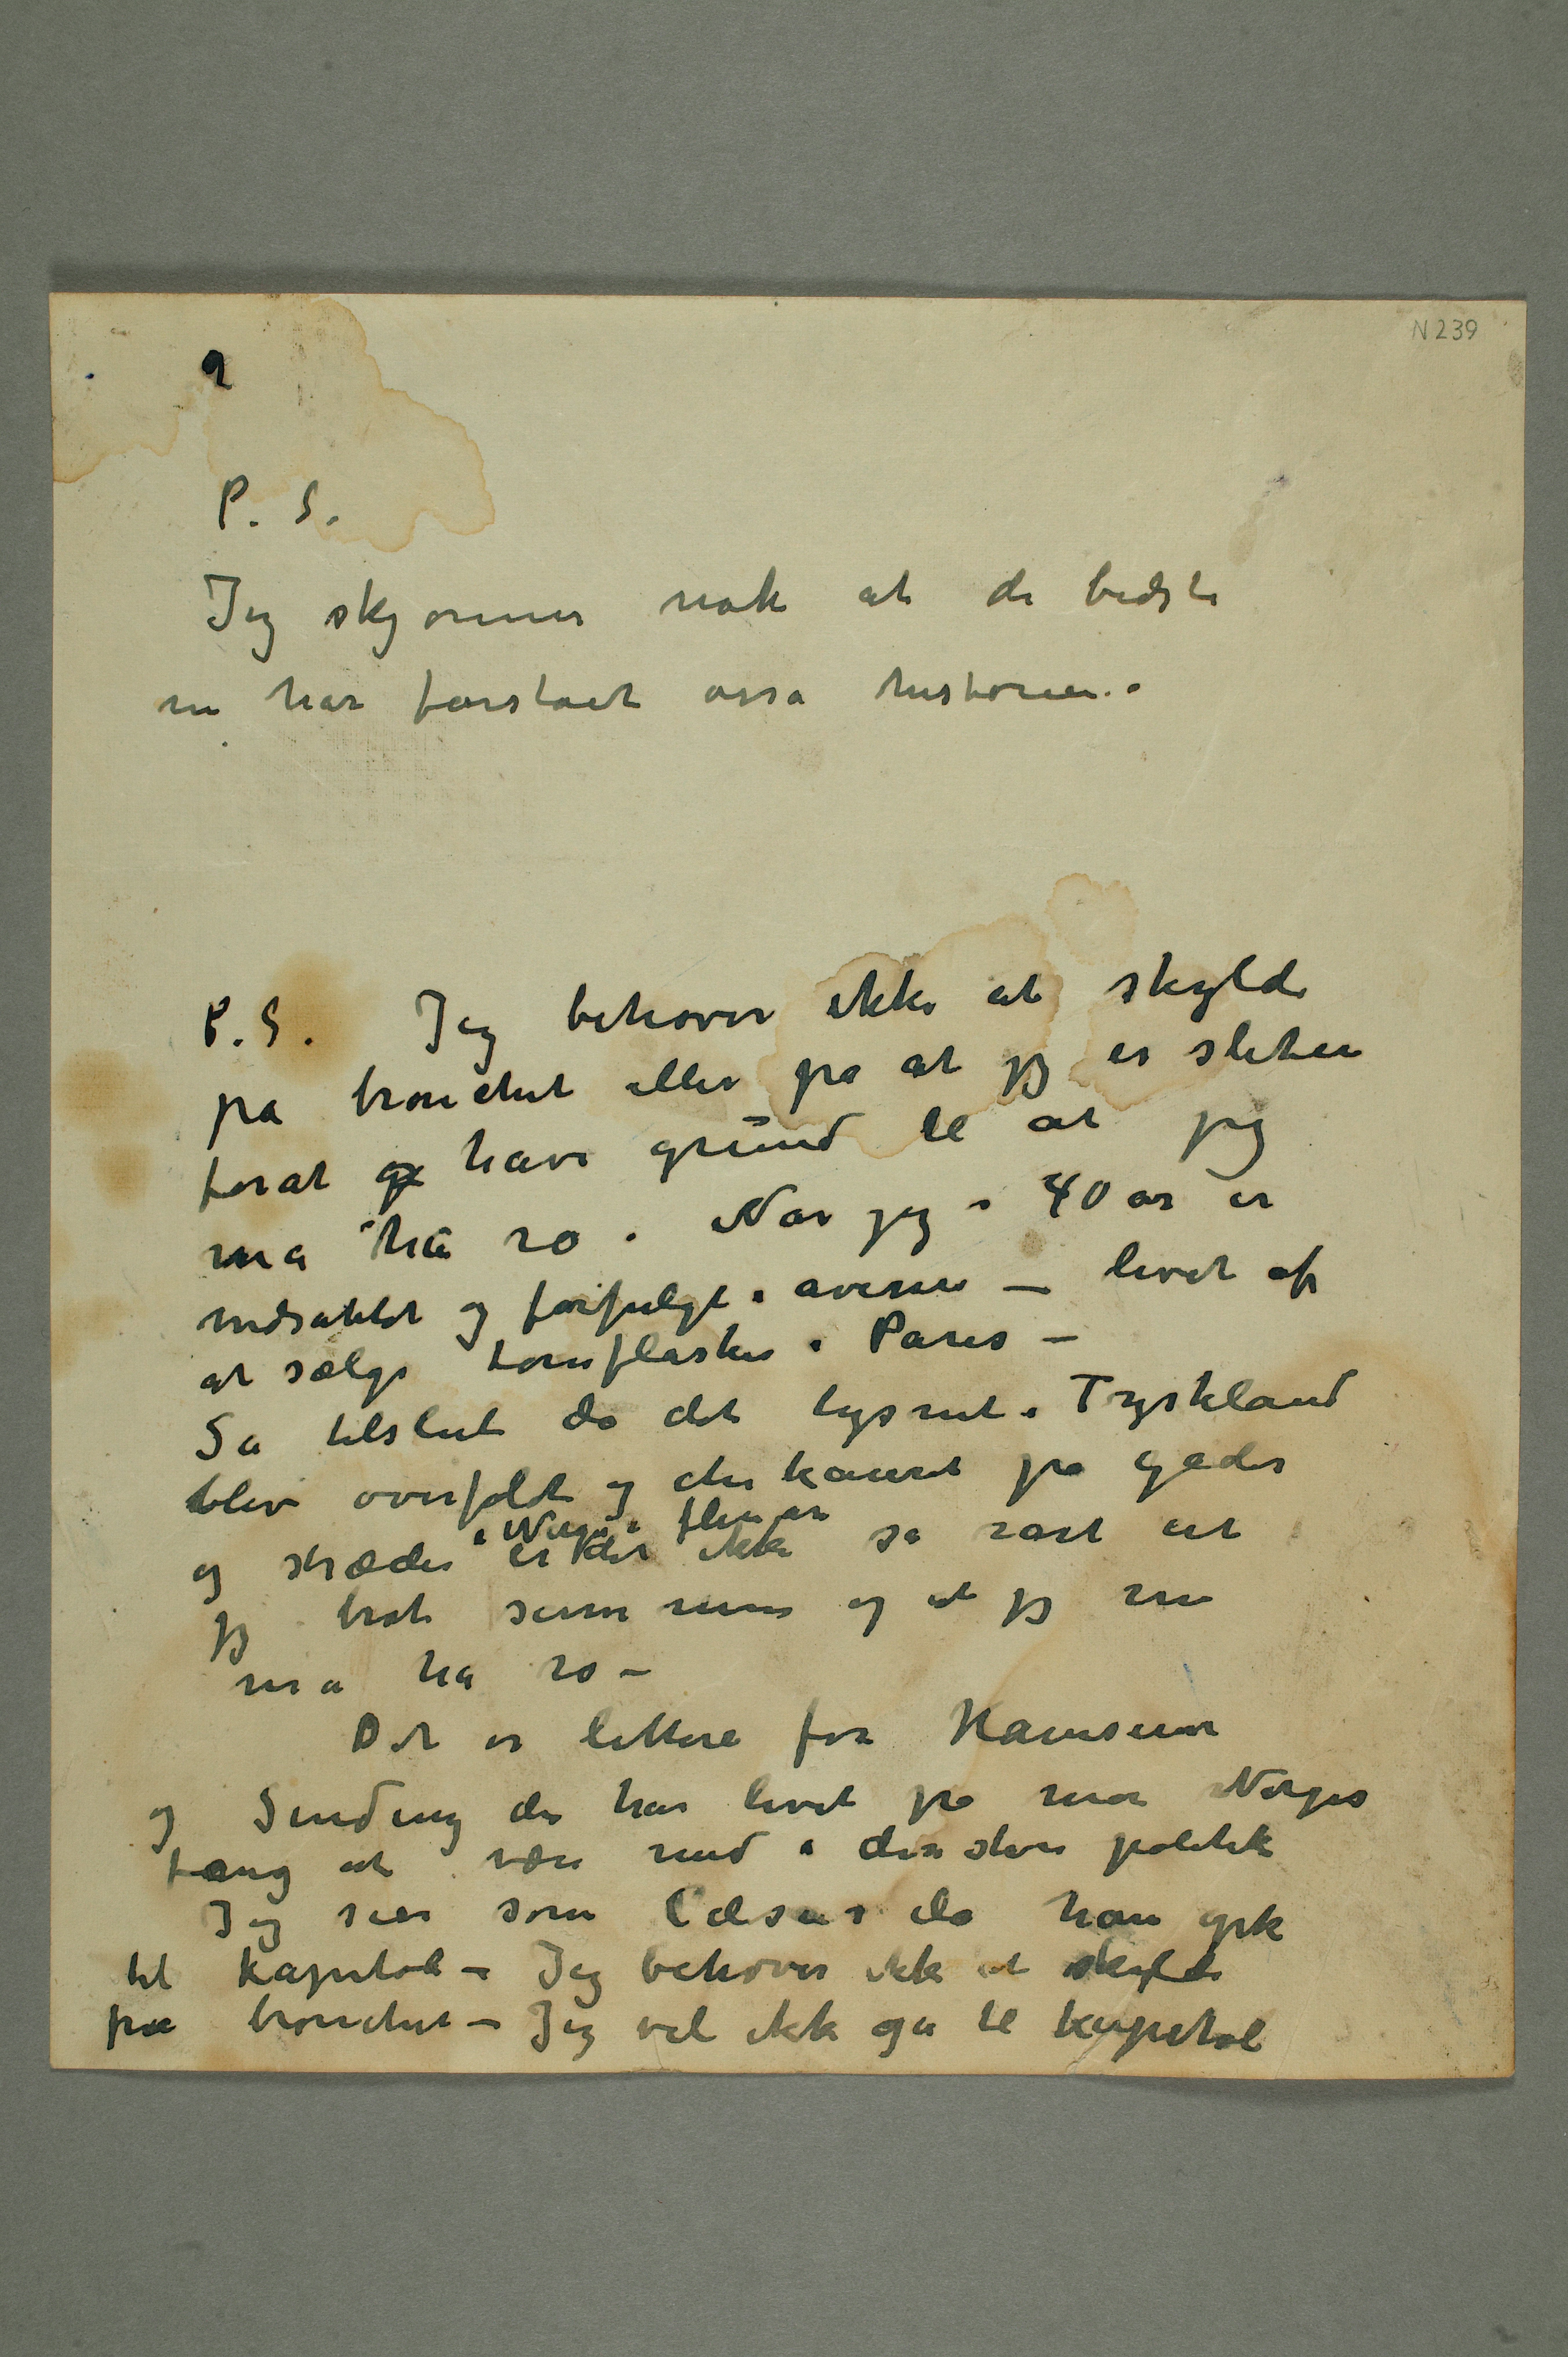 N 239
9
P. S.
Jeg skjønner nok at de bedste
nu har forstået osså historien.
P.S. Jeg behøver ikke at skylde
på bronchit eller på at jeg er sliten
forat have grund til at jeg
må ha ro. Når jeg i 40 år er
nedrakket og forfulgt i aviser – levet af
at sælge tomflasker i Paris –
Så tilslut da det lysnet i Tyskland
blev overfaldt og chikaneret på gader
og stræder i Norge i flere år er det ikke så rart at
jeg brøt sammen og at jeg nu
må ha ro –
Det er lettere for Hamsun
og Sinding der har levet på mor Norges
fang at være med i den store politik
Jeg sier som Cæsar da han gik
til Kapitol – Jeg behøver ikke at skylde
på bronchit – Jeg vil ikke gå til kapitol